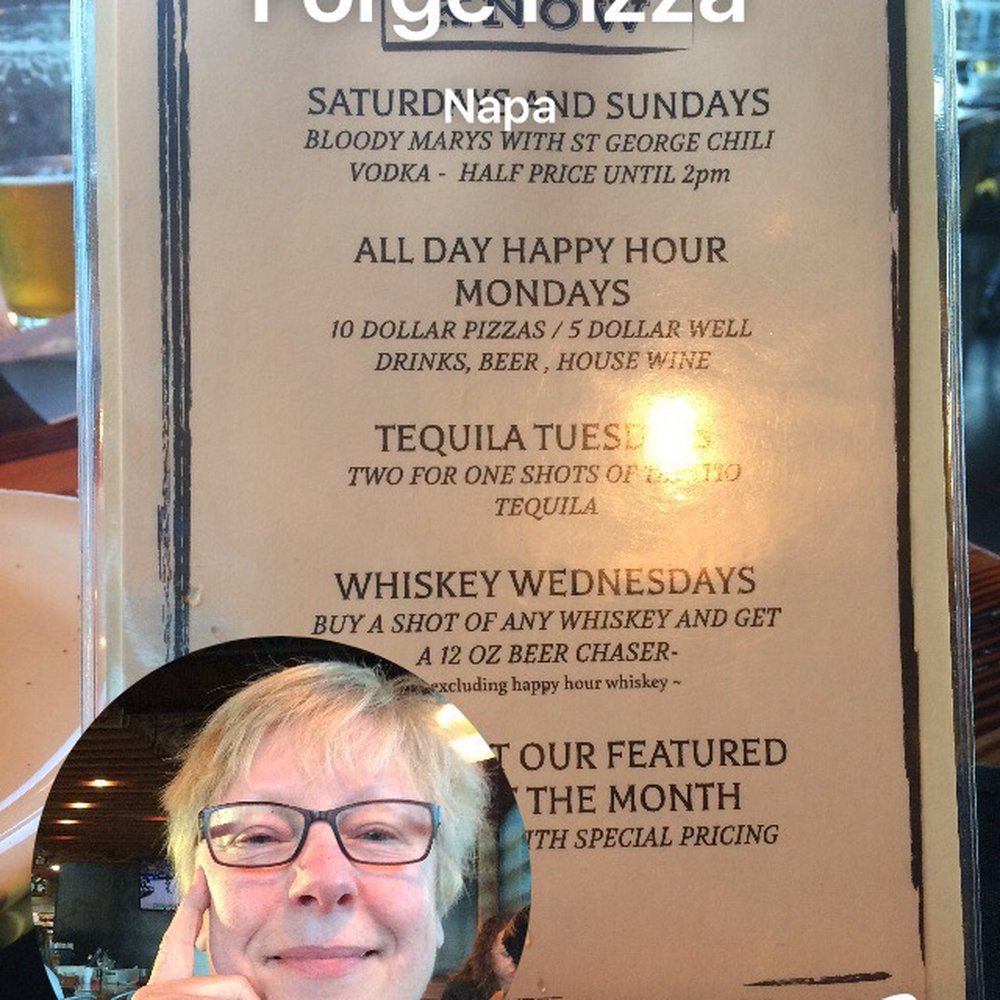 Forge Pizza
KNOW
Napa
SATURDAYS AND SUNDAYS
BLOODY MARYS WITH ST GEORGE CHILI
VODKA - HALF PRICE UNTIL 2pm
ALL DAY HAPPY HOUR
MONDAYS
10 DOLLAR PIZZAS / 5 DOLLAR WELL
DRINKS, BEER , HOUSE WINE
TEQUILA TUESDAYS
TWO FOR ONE SHOTS OF
TEQUILA
WHISKEY WEDNESDAYS
BUY A SHOT OF ANY WHISKEY AND GET
A 12 OZ BEER CHASER-
excluding happy hour whiskey ~
OUR FEATURED
THE MONTH
WITH SPECIAL PRICING